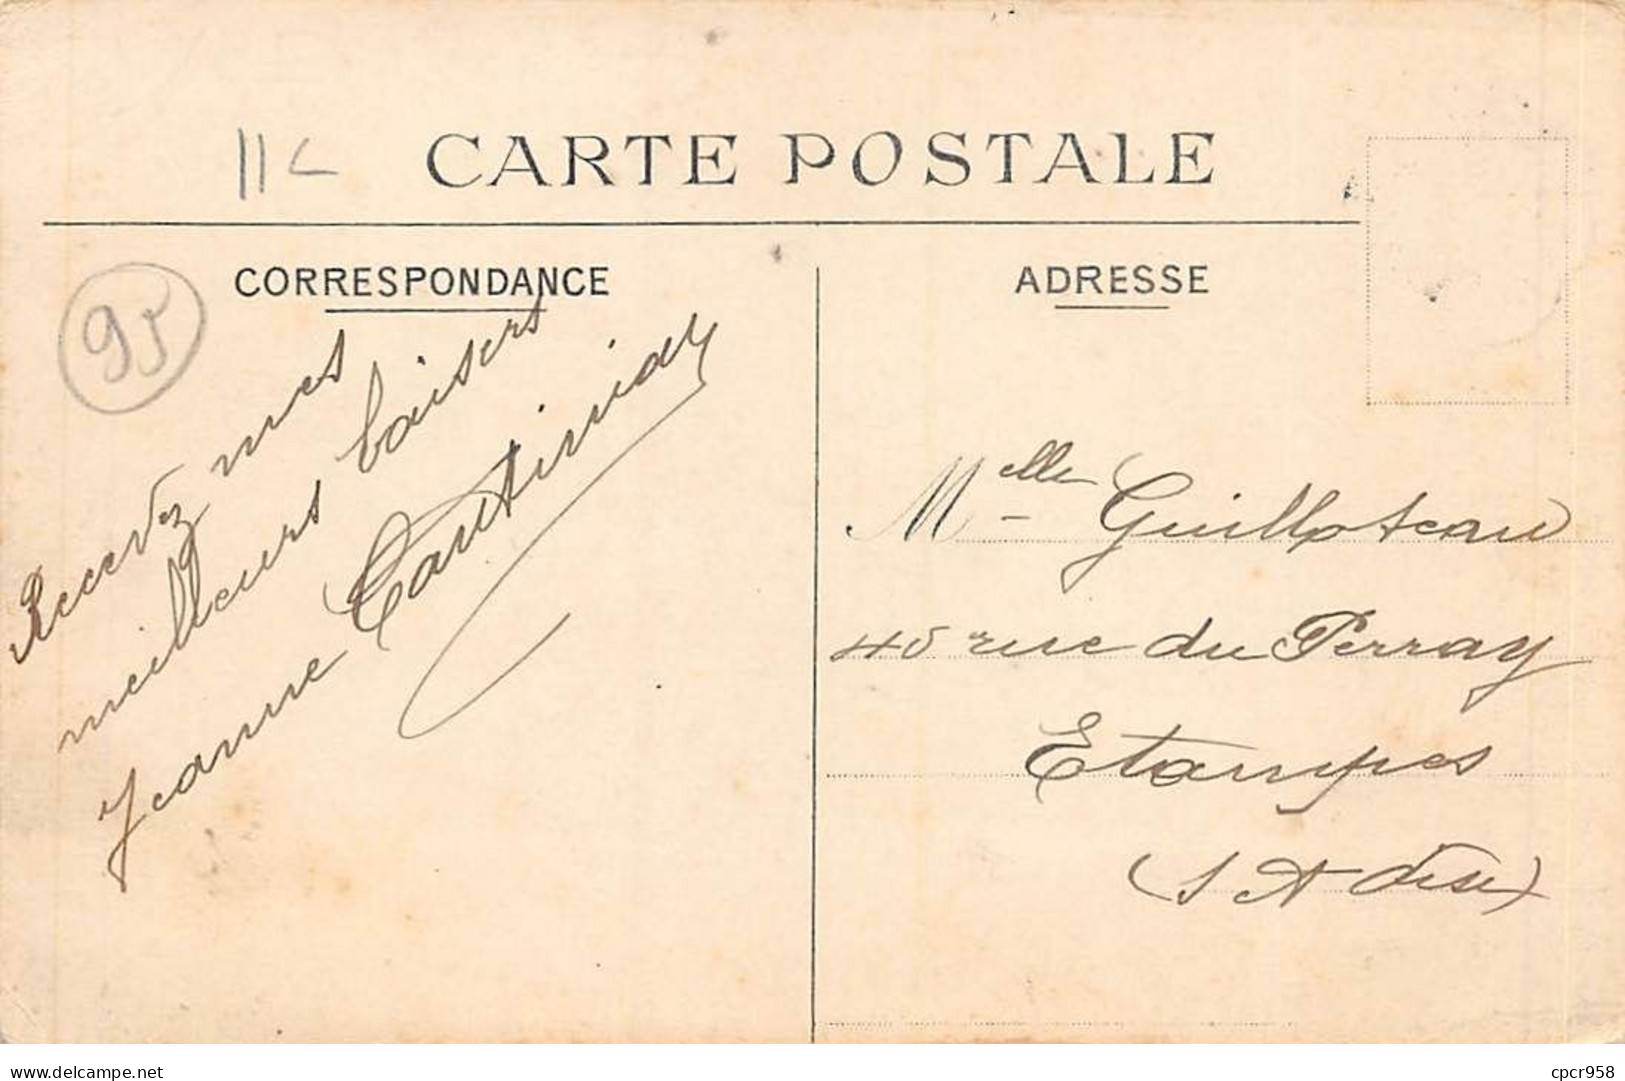 11 c
CARTE POSTALE
CORRESPONDANCE
95
Recevez mes
meilleurs baisers
Jeanne
ADRESSE
Melle Guilloteau
45 rue du Perray
Etampes
(S et Oise)
delcampe.net
cpcr958